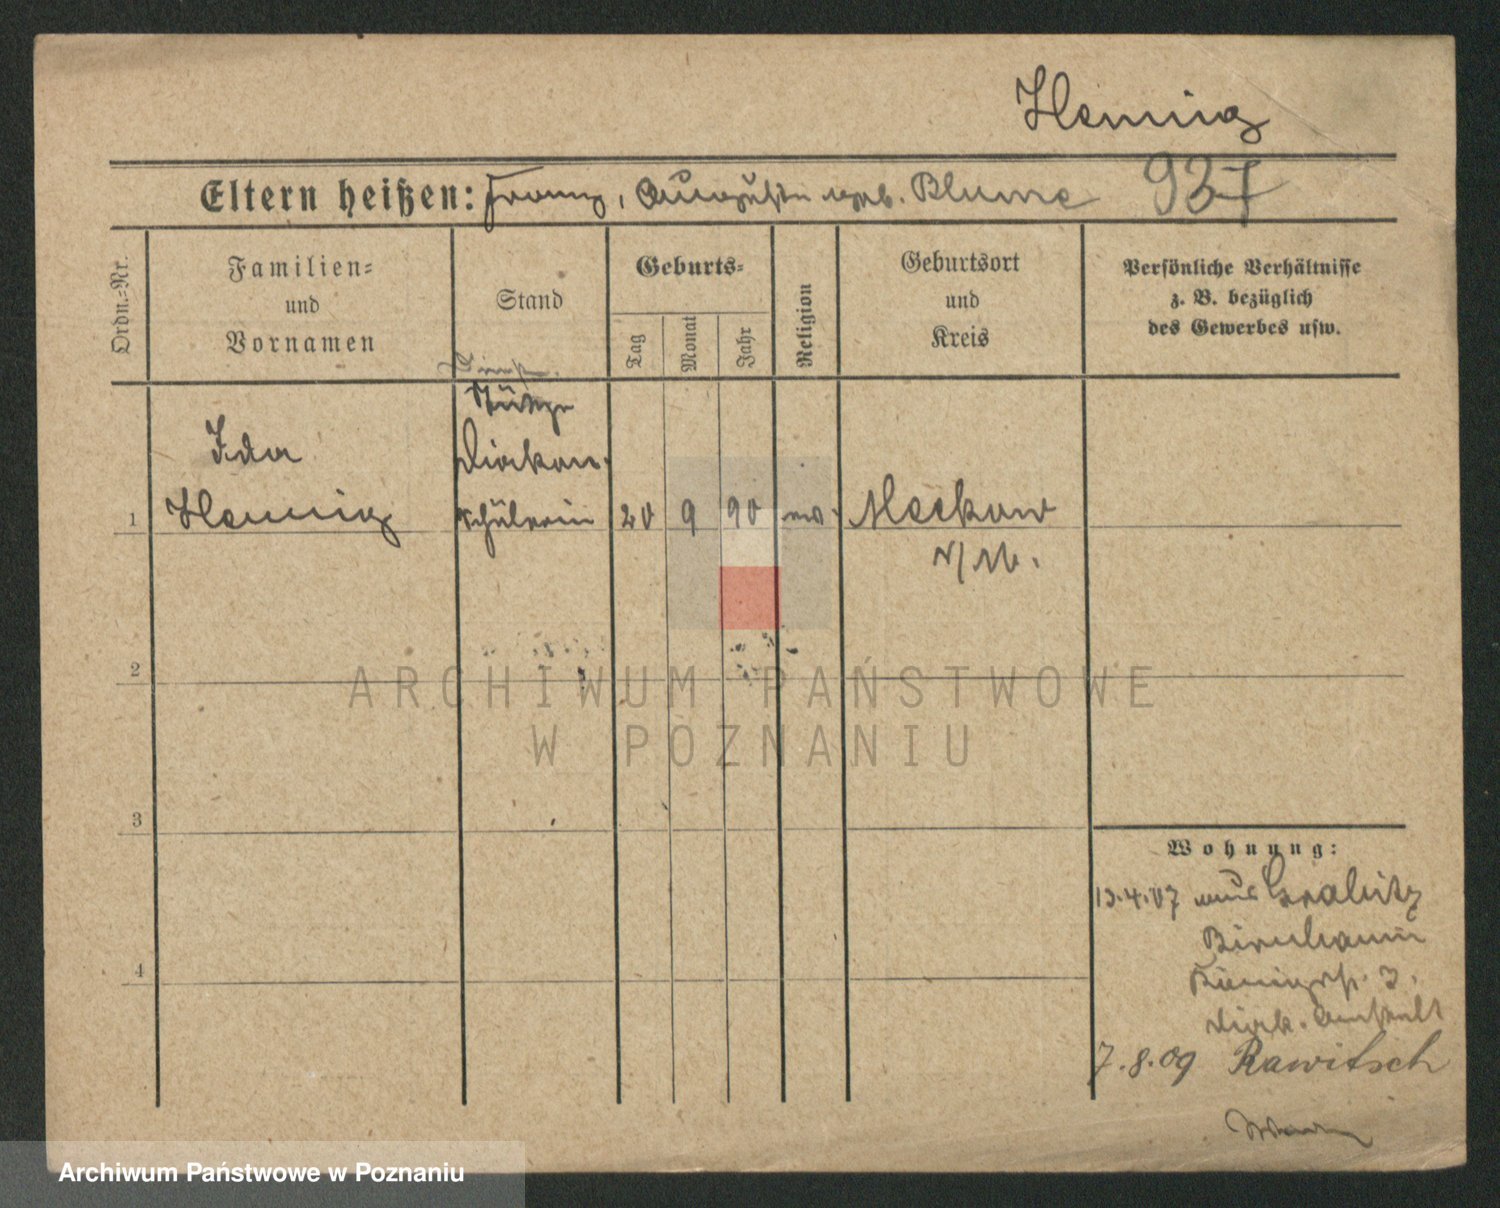 Hennig
Eltern heißen: Franz, Auguste geb. Blume 937
Ordn.-Nr.
Familien-
und
Vornamen
Stand
Geburts-
Tag
Monat
Jahr
Religion
Geburtsort
und
Kreis
Persönliche Verhältnisse
z. B. bezüglich
des Gewerbes usw.
Stütze
Ida
Diakon.
1 Hennig schülerin 20 9 90 ev. Meckow
2
3
4
Wohnung:
13.4.07 aus Grabitz
Birnbaum
Königstr. 3.
Diak. Anstalt
7.8.09 Rawitsch
ARCHIWUM PAŃSTWOWE
W POZNANIU
Archiwum Państwowe w Poznaniu